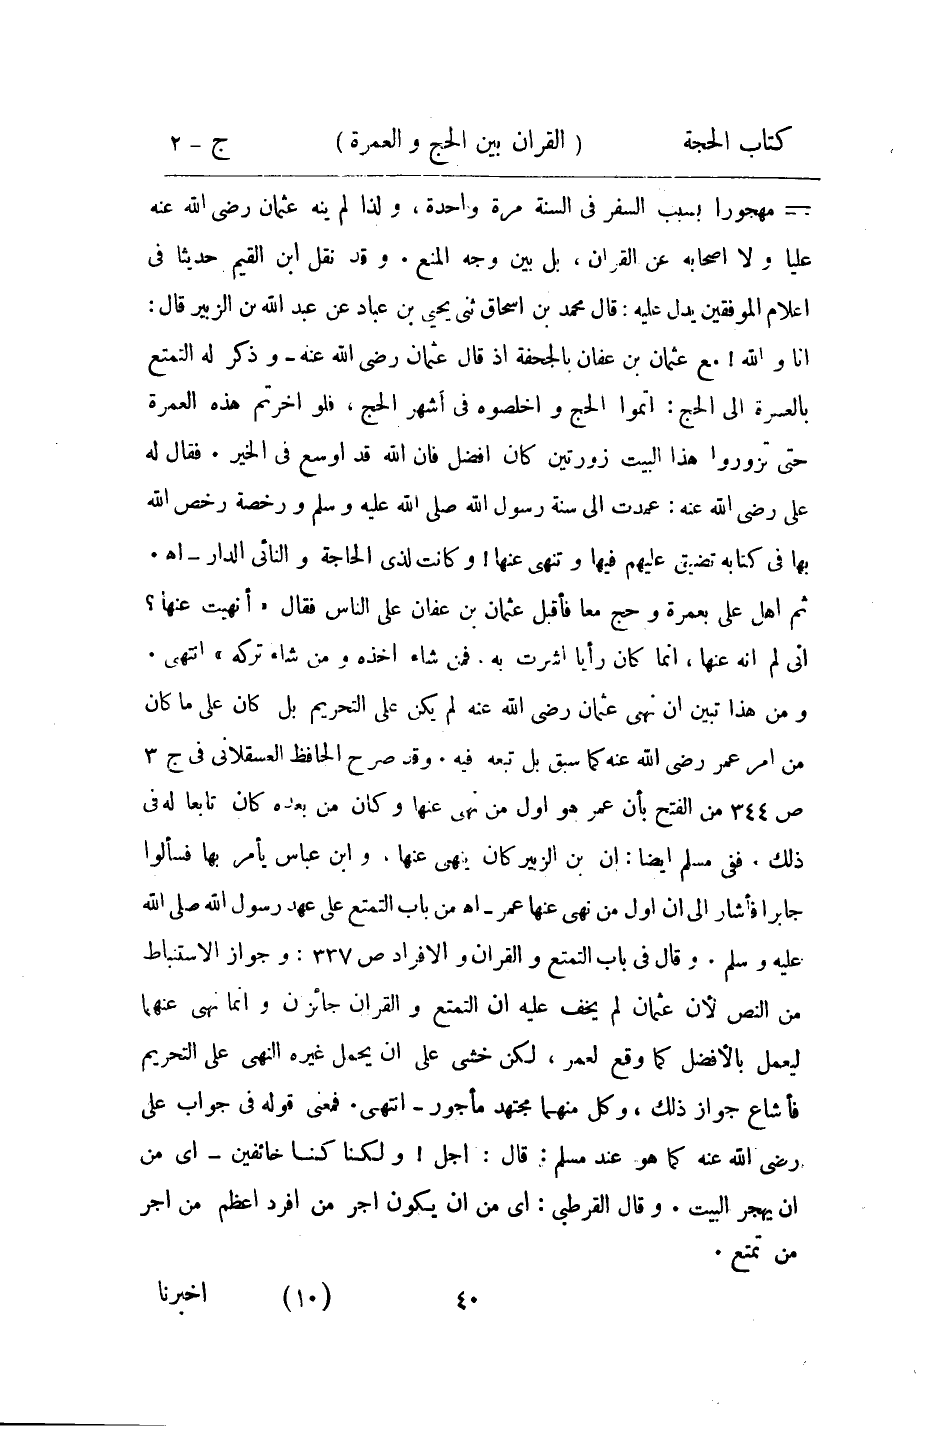 كتاب الحجة ( القران بين الحج و العمرة ) ج - ٢
= مهجورا بسبب السفر فى السنة مرة واحدة ، و لذا لم ينه عثمان رضى الله عنه
عليا و لا اصحابه عن القران ، بل بين وجه المنع ٠ و قد نقل ابن القيم حديثا فى
اعلام الموفقين يدل عليه : قال محمد بن اسحاق ثنى يحيى بن عباد عن عبد الله بن الزبير قال :
انا و الله ! مع عثمان بن عفان بالجحفة اذ قال عثمان رضى الله عنه - و ذكر له التمتع
بالعمرة الى الحج : اتموا الحج و اخلصوه فى أشهر الحج ، فلو اخرتم هذه العمرة
حتى تزوروا هذا البيت زورتين كان افضل فان الله قد اوسع فى الخير ٠ فقال له
على رضى الله عنه : عمدت الى سنة رسول الله صلى الله عليه و سلم و رخصة رخص الله
بها فى كتابه تضيق عليهم فيها و تنهى عنها ! و كانت لذى الحاجة و النائى الدار - اه ٠
ثم اهل على بعمرة و حج معا فأقبل عثمان بن عفان على الناس فقال « أنهيت عنها ؟
انى لم انه عنها ، انما كان رأيا اشرت به ٠ فمن شاء اخذه و من شاء تركه » انتهى ٠
و من هذا تبين ان نهى عثمان رضى الله عنه لم يكن على التحريم بل كان على ما كان
من امر عمر رضى الله عنه كما سبق بل تبعه فيه ٠ وقد صرح الحافظ العسقلانى فى ج ٣
ص ٣٤٤ من الفتح بأن عمر هو اول من نهى عنها و كان من بعده كان تابعا له فى
ذلك ٠ ففى مسلم ايضا : ان بن الزبير كان ينهى عنها ، و ابن عباس يأمر بها فسألوا
جابرا فأشار الى ان اول من نهى عنها عمر - اه من باب التمتع على عهد رسول الله صلى الله
عليه و سلم ٠ و قال فى باب التمتع و القران و الافراد ص ٣٣٧ : و جواز الاستنباط
من النص لأن عثمان لم يخف عليه ان التمتع و القران جائزن و انما نهى عنهما
ليعمل بالأفضل كما وقع لعمر ، لكن خشى على ان يحمل غيره النهى على التحريم
فأشاع جواز ذلك ، و كل منهما مجتهد مأجور - انتهى ٠ فمعنى قوله فى جواب على
رضى الله عنه كما هو عند مسلم : قال : اجل ! و لكنا كنا خائفين - اى من
ان يهجر البيت ٠ و قال القرطبى : اى من ان يكون اجر من افرد اعظم من اجر
من تمتع ٠
٤٠ (١٠) اخبرنا